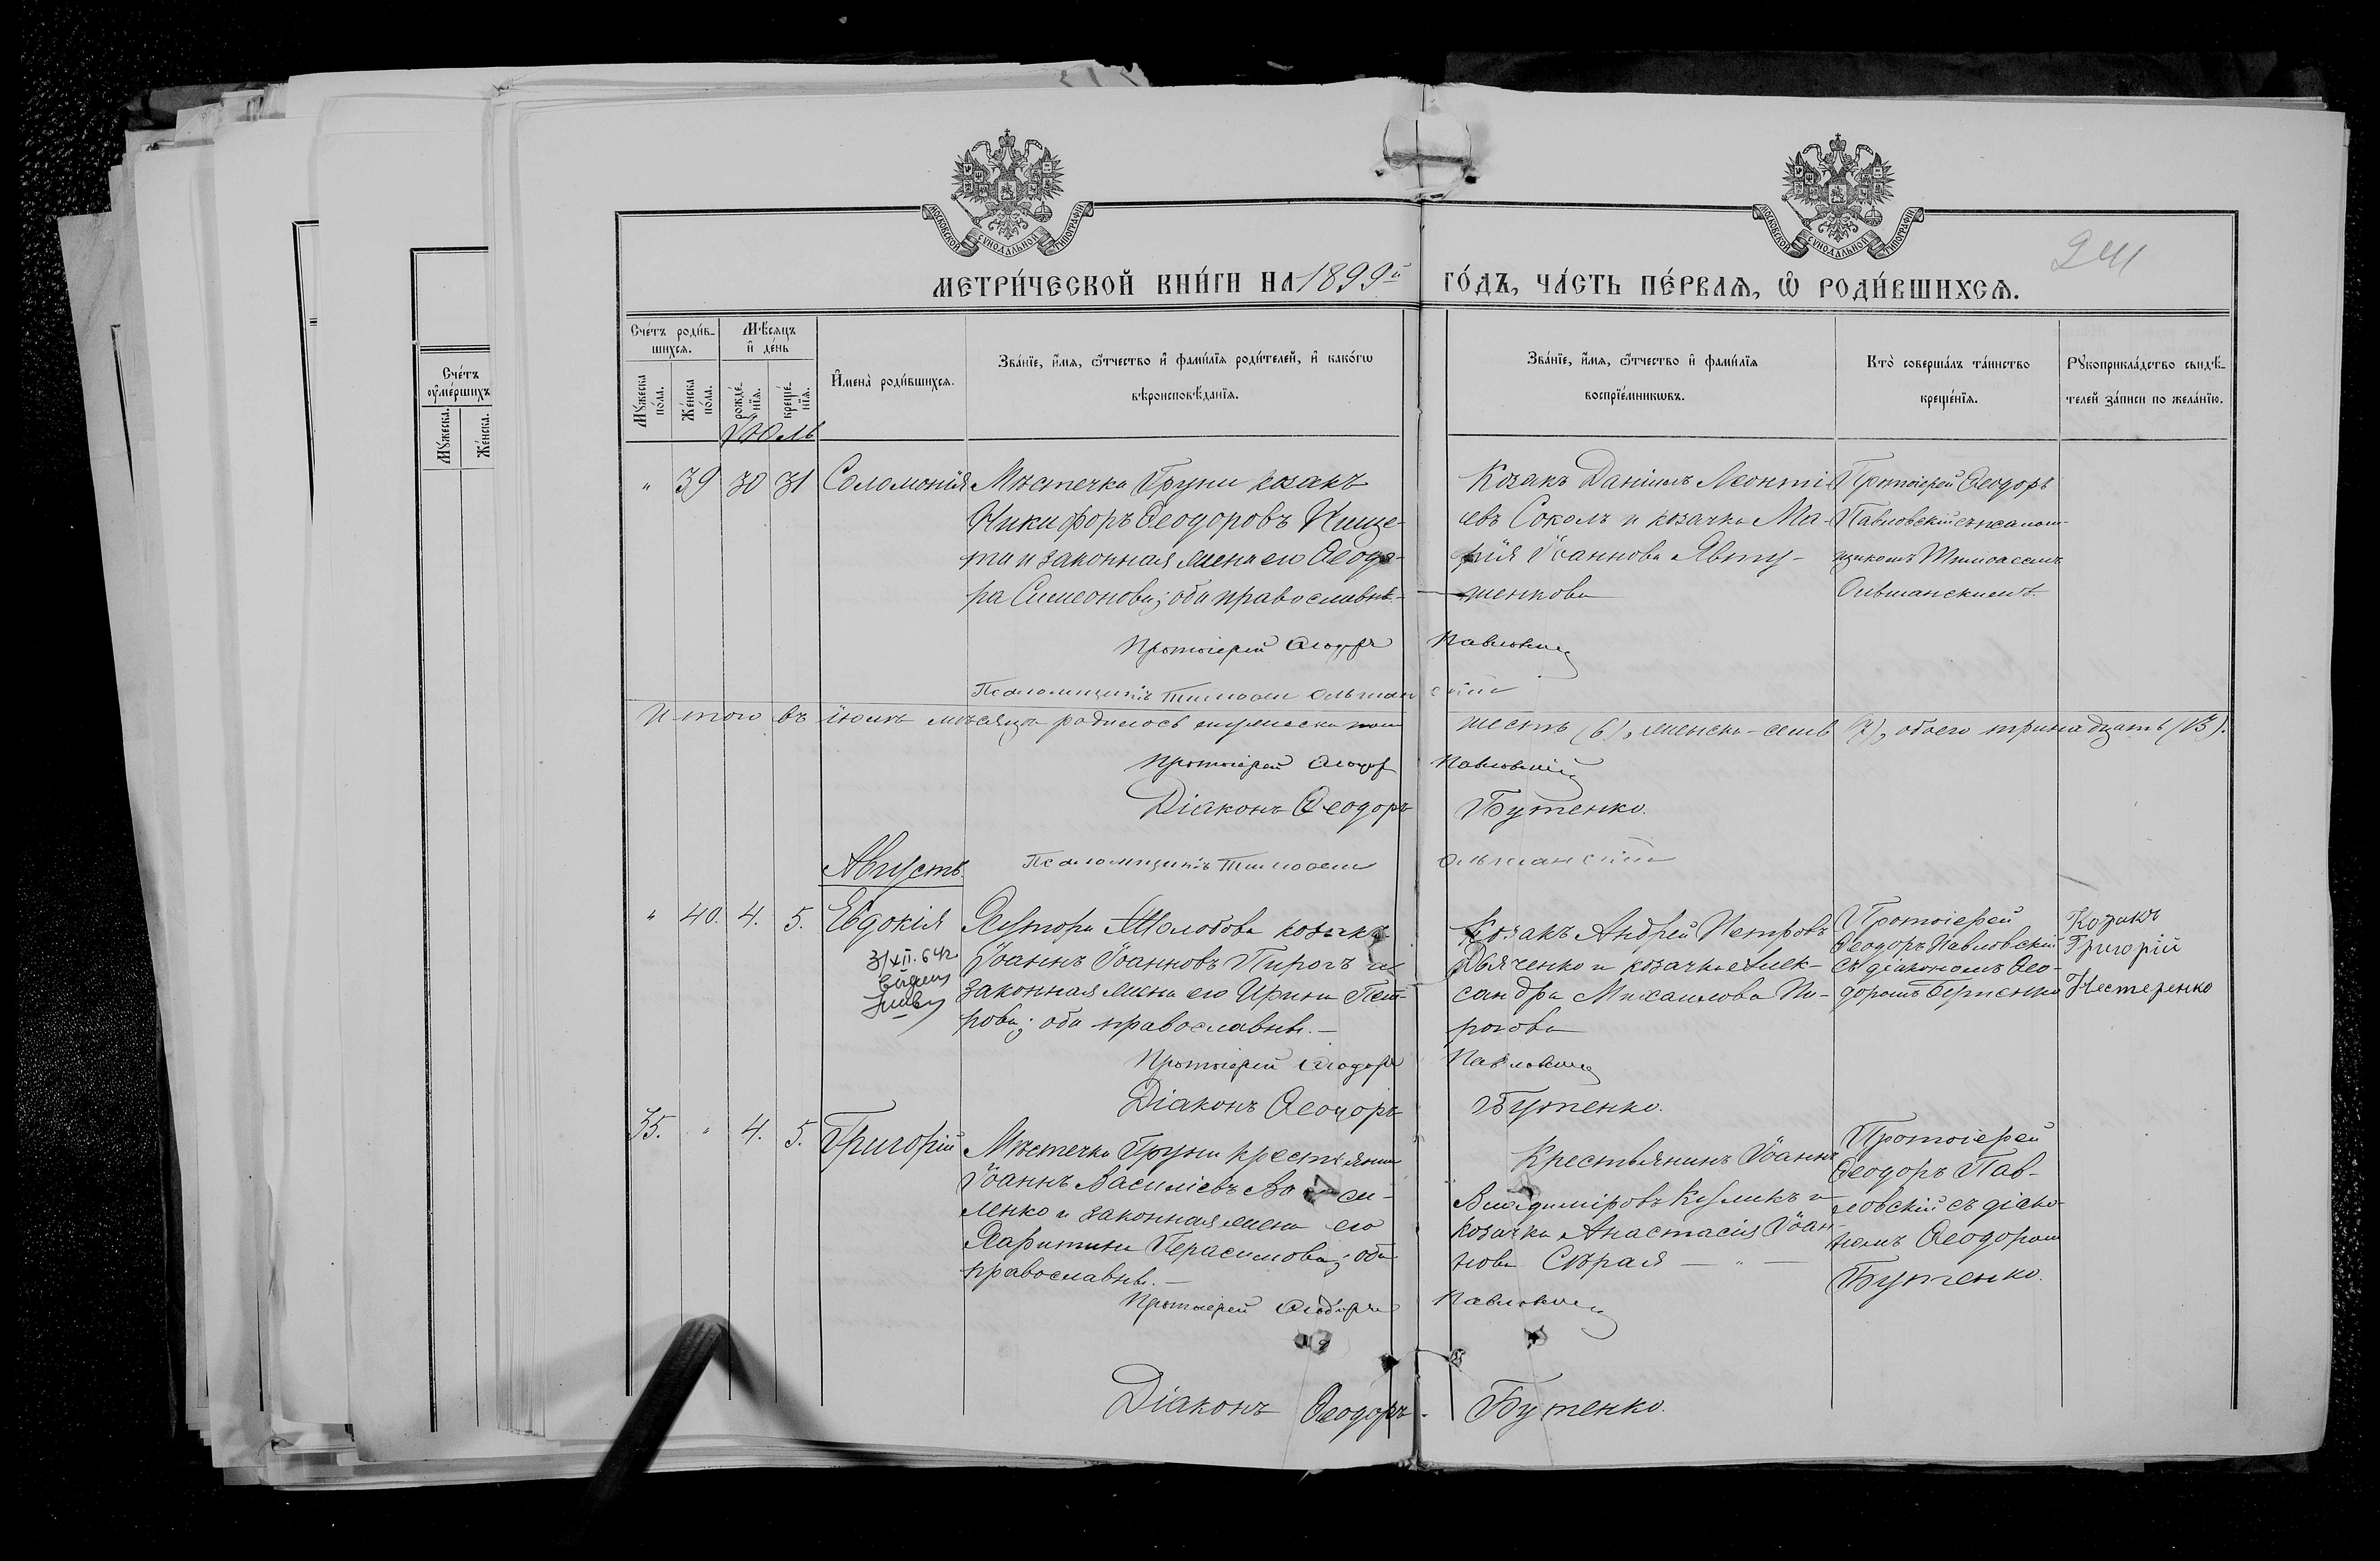 МОСКОВСКОЙ СУНОДАЛЬНОЙ ТИПОГРАФІИ
МОСКОВСКОЙ СУНОДАЛЬНОЙ ТИПОГРАФІИ
241
МЕТРИ́ЧЕСКОЙ КНИ́ГИ НА 1899й ГО́ДЪ, ЧА́СТЬ ПЕ́РВАѦ, Ѡ РОДИ́ВШИХСѦ.
Сче́тъ оуме́ршихъ
Мꙋжеска.
Же́нска.
Сче́тъ роди́в-
шихсѧ.
Мѣ́сѧцъ
и҆ де́нь
Мꙋжеска по́ла.
Же́нска по́ла.
рожде́-
нїѧ.
креще́-
нїѧ.
И҆мена̀ роди́вшихсѧ.
Зва́нїе, и҆́мѧ, ѻ҆́тчество и҆ фами́лїѧ роди́телей, и҆ како́гѡ
вѣроисповѣ́данїѧ.
Зва́нїе, и҆́мѧ, ѻ҆́тчество и҆ фами́лїѧ
воспрїе́мникѡвъ.
Кто̀ соверша́лъ та́инство
креще́нїѧ.
Рꙋкоприкла́дство свидѣ́-
телей за́писи по жела́нїю.
Іюль
" 39 30 31 Соломонія Мѣстечка Груни козакъ
Никифоръ Ѳеодоровъ
и законная жена его Ѳеодо-
ра Симеонова; оба православнı.
Козакъ Даніилъ Леонті-
евъ Соколъ и козачка Ма-
рія Іоаннова Явту-
шенкова
Протоіерей Ѳеодоръ
Павловскій съ псалом-
щикомъ Тимоѳеемъ
Ольшанскимъ.
Протоіерей Ѳеодоръ Павловскій
Псаломщикъ Тимоѳей Ольшанскій
Итого въ іюлѣ мѣсяцѣ родилось мужеска пола шесть (6), женска - семь (7), обоего тринадцать (13).
Протоіерей Ѳеодоръ Павловскій
Діаконъ Ѳеодоръ Бутенко.
Августъ
Псаломщикъ Тимоѳей Ольшанскій
" 40. 4. 5. Евдокія Хутора козакъ
Іоаннъ Іоанновъ Пирогъ и
законная жена его Ирина Пет-
рова; оба православны.
31/XII. 64г.
Козакъ Андрей Петровъ
Дьяченко и козачка Алек-
сандра Михаилова Пи-
рогова
Протоіерей
Ѳеодоръ Павловскій
съ діакономъ Ѳео-
доромъ Бутенко
Козакъ
Григорій
Нестеренко
Протоіерей Ѳеодоръ Павловскій
Діаконъ Ѳеодоръ Бутенко.
35. " 4. 5. Григорій Мѣстечка Груни крестьянинъ
Іоаннъ Василіевъ
и законная жена его
Харитина Герасимова; оба
православны.
Крестьянинъ Іоаннъ
Владиміровъ Куликъ и
козачка Анастасія Іоан-
нова Сѣрая
Протоіерей
Ѳеодоръ Пав-
ловскій съ діако-
номъ Ѳеодоромъ
Бутенко.
Протоіерей Ѳеодоръ Павловскій
Діаконъ Ѳеодоръ Бутенко.